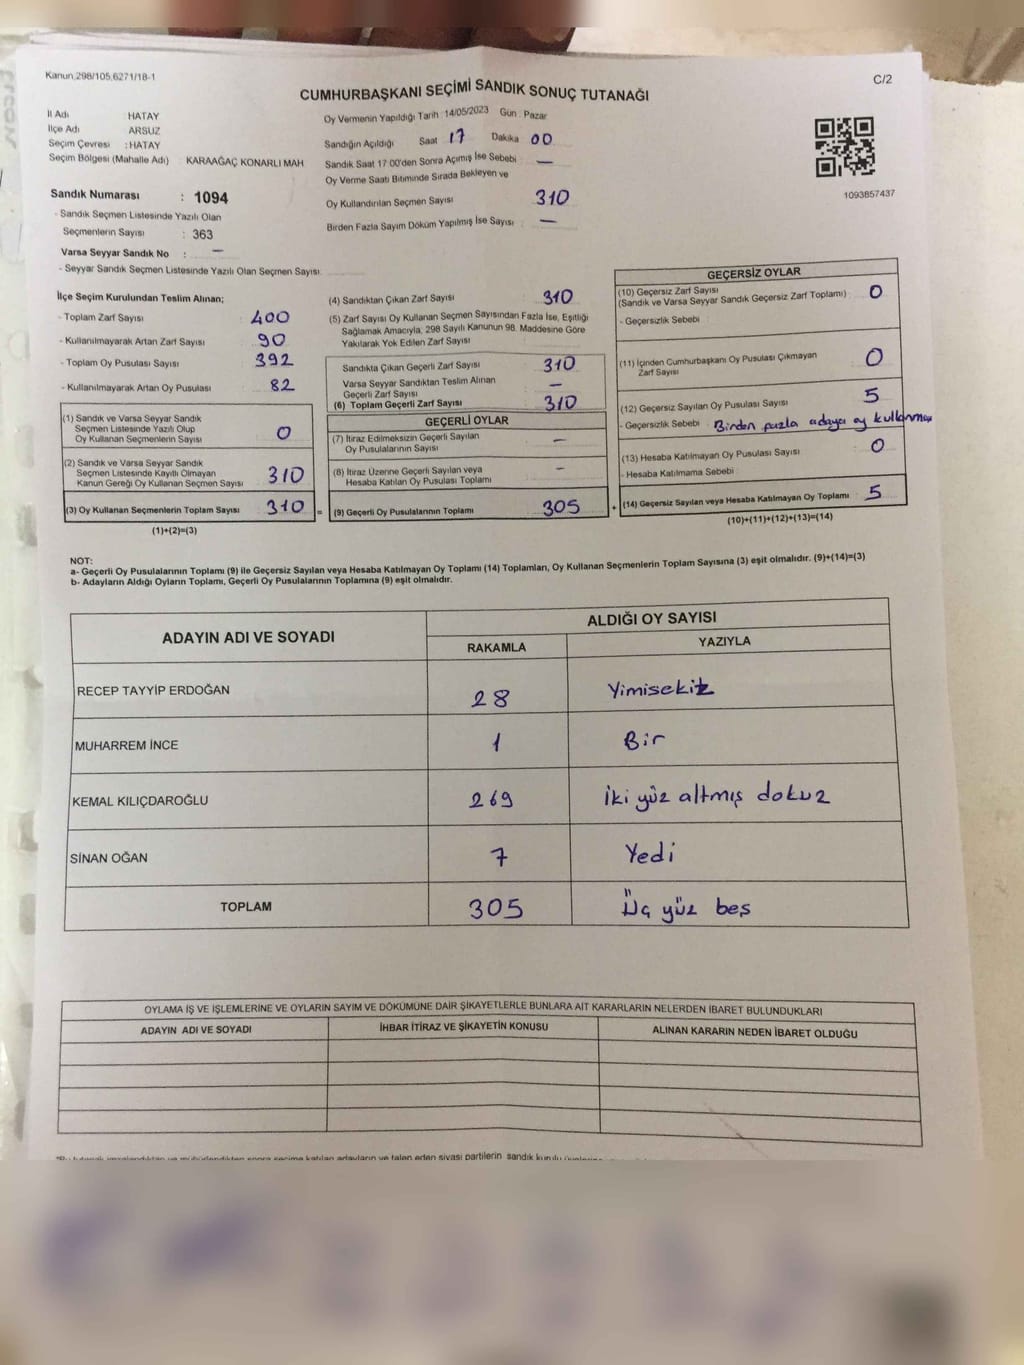 Kanun 298/105,6271/18-1
C/2
CUMHURBAŞKANI SEÇİMİ SANDIK SONUÇ TUTANAĞI
İl Adı HATAY
İlçe Adı ARSUZ
Seçim Çevresi :HATAY
Seçim Bölgesi (Mahalle Adı) KARAAĞAÇ KONARLI MAH
Sandık Numarası : 1094
- Sandık Seçmen Listesinde Yazılı Olan
Seçmenlerin Sayısı : 363
Varsa Seyyar Sandık No : —
- Seyyar Sandık Seçmen Listesinde Yazılı Olan Seçmen Sayısı
Oy Vermenin Yapıldığı Tarih :14/05/2023 Gün : Pazar
Sandığın Açıldığı Saat 17 Dakika 00
Sandık Saat 17 00'den Sonra Açımış İse Sebebi : —
Oy Verme Saati Bitiminde Sırada Bekleyen ve
Oy Kullandırılan Seçmen Sayısı 310
Birden Fazla Sayım Döküm Yapılmış İse Sayısı : —
1093857437
İlçe Seçim Kurulundan Teslim Alınan;
- Toplam Zarf Sayısı 400
- Kullanılmayarak Artan Zarf Sayısı 90
- Toplam Oy Pusulası Sayısı 392
- Kullanılmayarak Artan Oy Pusulası 82
(1) Sandık ve Varsa Seyyar Sandık
Seçmen Listesinde Yazılı Olup
Oy Kullanan Seçmenlerin Sayısı 0
(2) Sandık ve Varsa Seyyar Sandık
Seçmen Listesinde Kayıtlı Olmayan
Kanun Gereği Oy Kullanan Seçmen Sayısı 310
(3) Oy Kullanan Seçmenlerin Toplam Sayısı 310 =
(1)+(2)=(3)
(4) Sandıktan Çıkan Zarf Sayısı 310
(5) Zarf Sayısı Oy Kullanan Seçmen Sayısından Fazla İse, Eşitliği
Sağlamak Amacıyla, 298 Sayılı Kanunun 98. Maddesine Göre
Yakılarak Yok Edilen Zarf Sayısı
Sandıkta Çıkan Geçerli Zarf Sayısı 310
Varsa Seyyar Sandıktan Teslim Alınan
Geçerli Zarf Sayısı —
(6) Toplam Geçerli Zarf Sayısı 310
GEÇERLİ OYLAR
(7) İtiraz Edilmeksizin Geçerli Sayılan
Oy Pusulalarının Sayısı —
(8) İtiraz Üzerine Geçerli Sayılan veya
Hesaba Katılan Oy Pusulası Toplamı —
(9) Geçerli Oy Pusulalarının Toplamı 305 +
GEÇERSİZ OYLAR
(10) Geçersiz Zarf Sayısı 0
(Sandık ve Varsa Seyyar Sandık Geçersiz Zarf Toplamı)
- Geçersizlik Sebebi :
(11) İçinden Cumhurbaşkanı Oy Pusulası Çıkmayan
Zarf Sayısı 0
(12) Geçersiz Sayılan Oy Pusulası Sayısı 5
- Geçersizlik Sebebi Birden fazla adaya oy kullanması
(13) Hesaba Katılmayan Oy Pusulası Sayısı 0
- Hesaba Katılmama Sebebi
(14) Geçersiz Sayılan veya Hesaba Katılmayan Oy Toplamı 5
(10)+(11)+(12)+(13)=(14)
NOT:
a- Geçerli Oy Pusulalarının Toplamı (9) ile Geçersiz Sayılan veya Hesaba Katılmayan Oy Toplamı (14) Toplamları, Oy Kullanan Seçmenlerin Toplam Sayısına (3) eşit olmalıdır. (9)+(14)=(3)
b- Adayların Aldığı Oyların Toplamı, Geçerli Oy Pusulalarının Toplamına (9) eşit olmalıdır.
ADAYIN ADI VE SOYADI ALDIĞI OY SAYISI
RAKAMLA YAZIYLA
RECEP TAYYİP ERDOĞAN 28 Yimisekiz
MUHARREM İNCE 1 Bir
KEMAL KILIÇDAROĞLU 269 iki yüz altmış dokuz
SİNAN OĞAN 7 Yedi
TOPLAM 305 Üç yüz beş
OYLAMA İŞ VE İŞLEMLERİNE VE OYLARIN SAYIM VE DÖKÜMÜNE DAİR ŞİKAYETLERLE BUNLARA AİT KARARLARIN NELERDEN İBARET BULUNDUKLARI
ADAYIN ADI VE SOYADI İHBAR İTİRAZ VE ŞİKAYETİN KONUSU ALINAN KARARIN NEDEN İBARET OLDUĞU